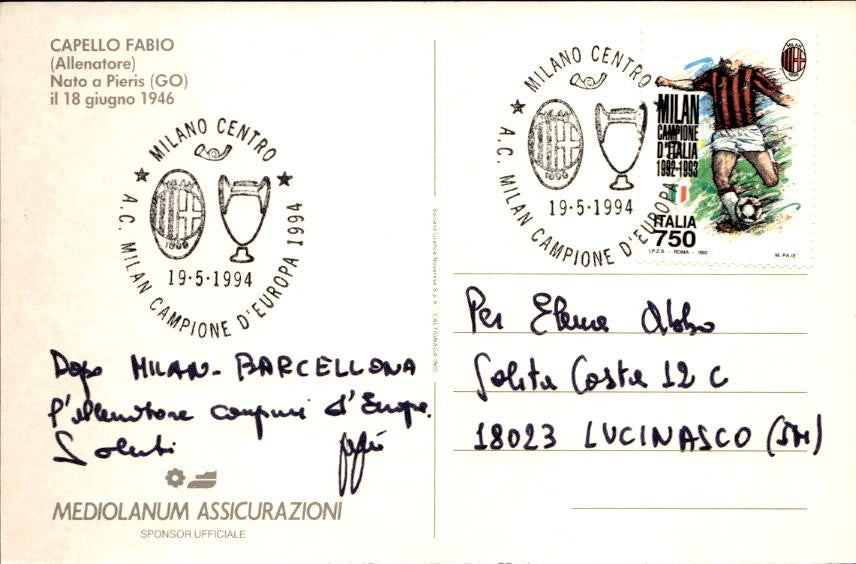 CAPELLO FABIO
(Allenatore)
Nato a Pieris (GO)
il 18 giugno 1946
MILANO CENTRO
1899
19·5·1994
A.C. MILAN CAMPIONE D'EUROPA 1994
Dopo MILAN-BARCELLONA
l'allenatore campione d'Europa.
Saluti
MEDIOLANUM ASSICURAZIONI
SPONSOR UFFICIALE
MILANO CENTRO
1899
19·5·1994
A.C. MILAN CAMPIONE D'EUROPA
MILAN
1899
MILAN
CAMPIONE
D'ITALIA
1992-1993
ITALIA
750
I.P.Z.S. - ROMA - 1993
Per Elena Abbo
Salita Costa 12 C
18023 LUCINASCO (IM)